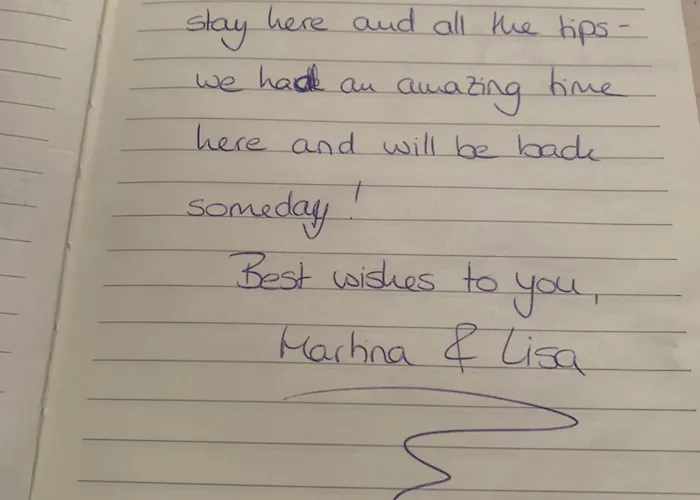 stay here and all the tips-
we had an amazing time
here and will be back
someday!
Best wishes to you,
Martina & Lisa